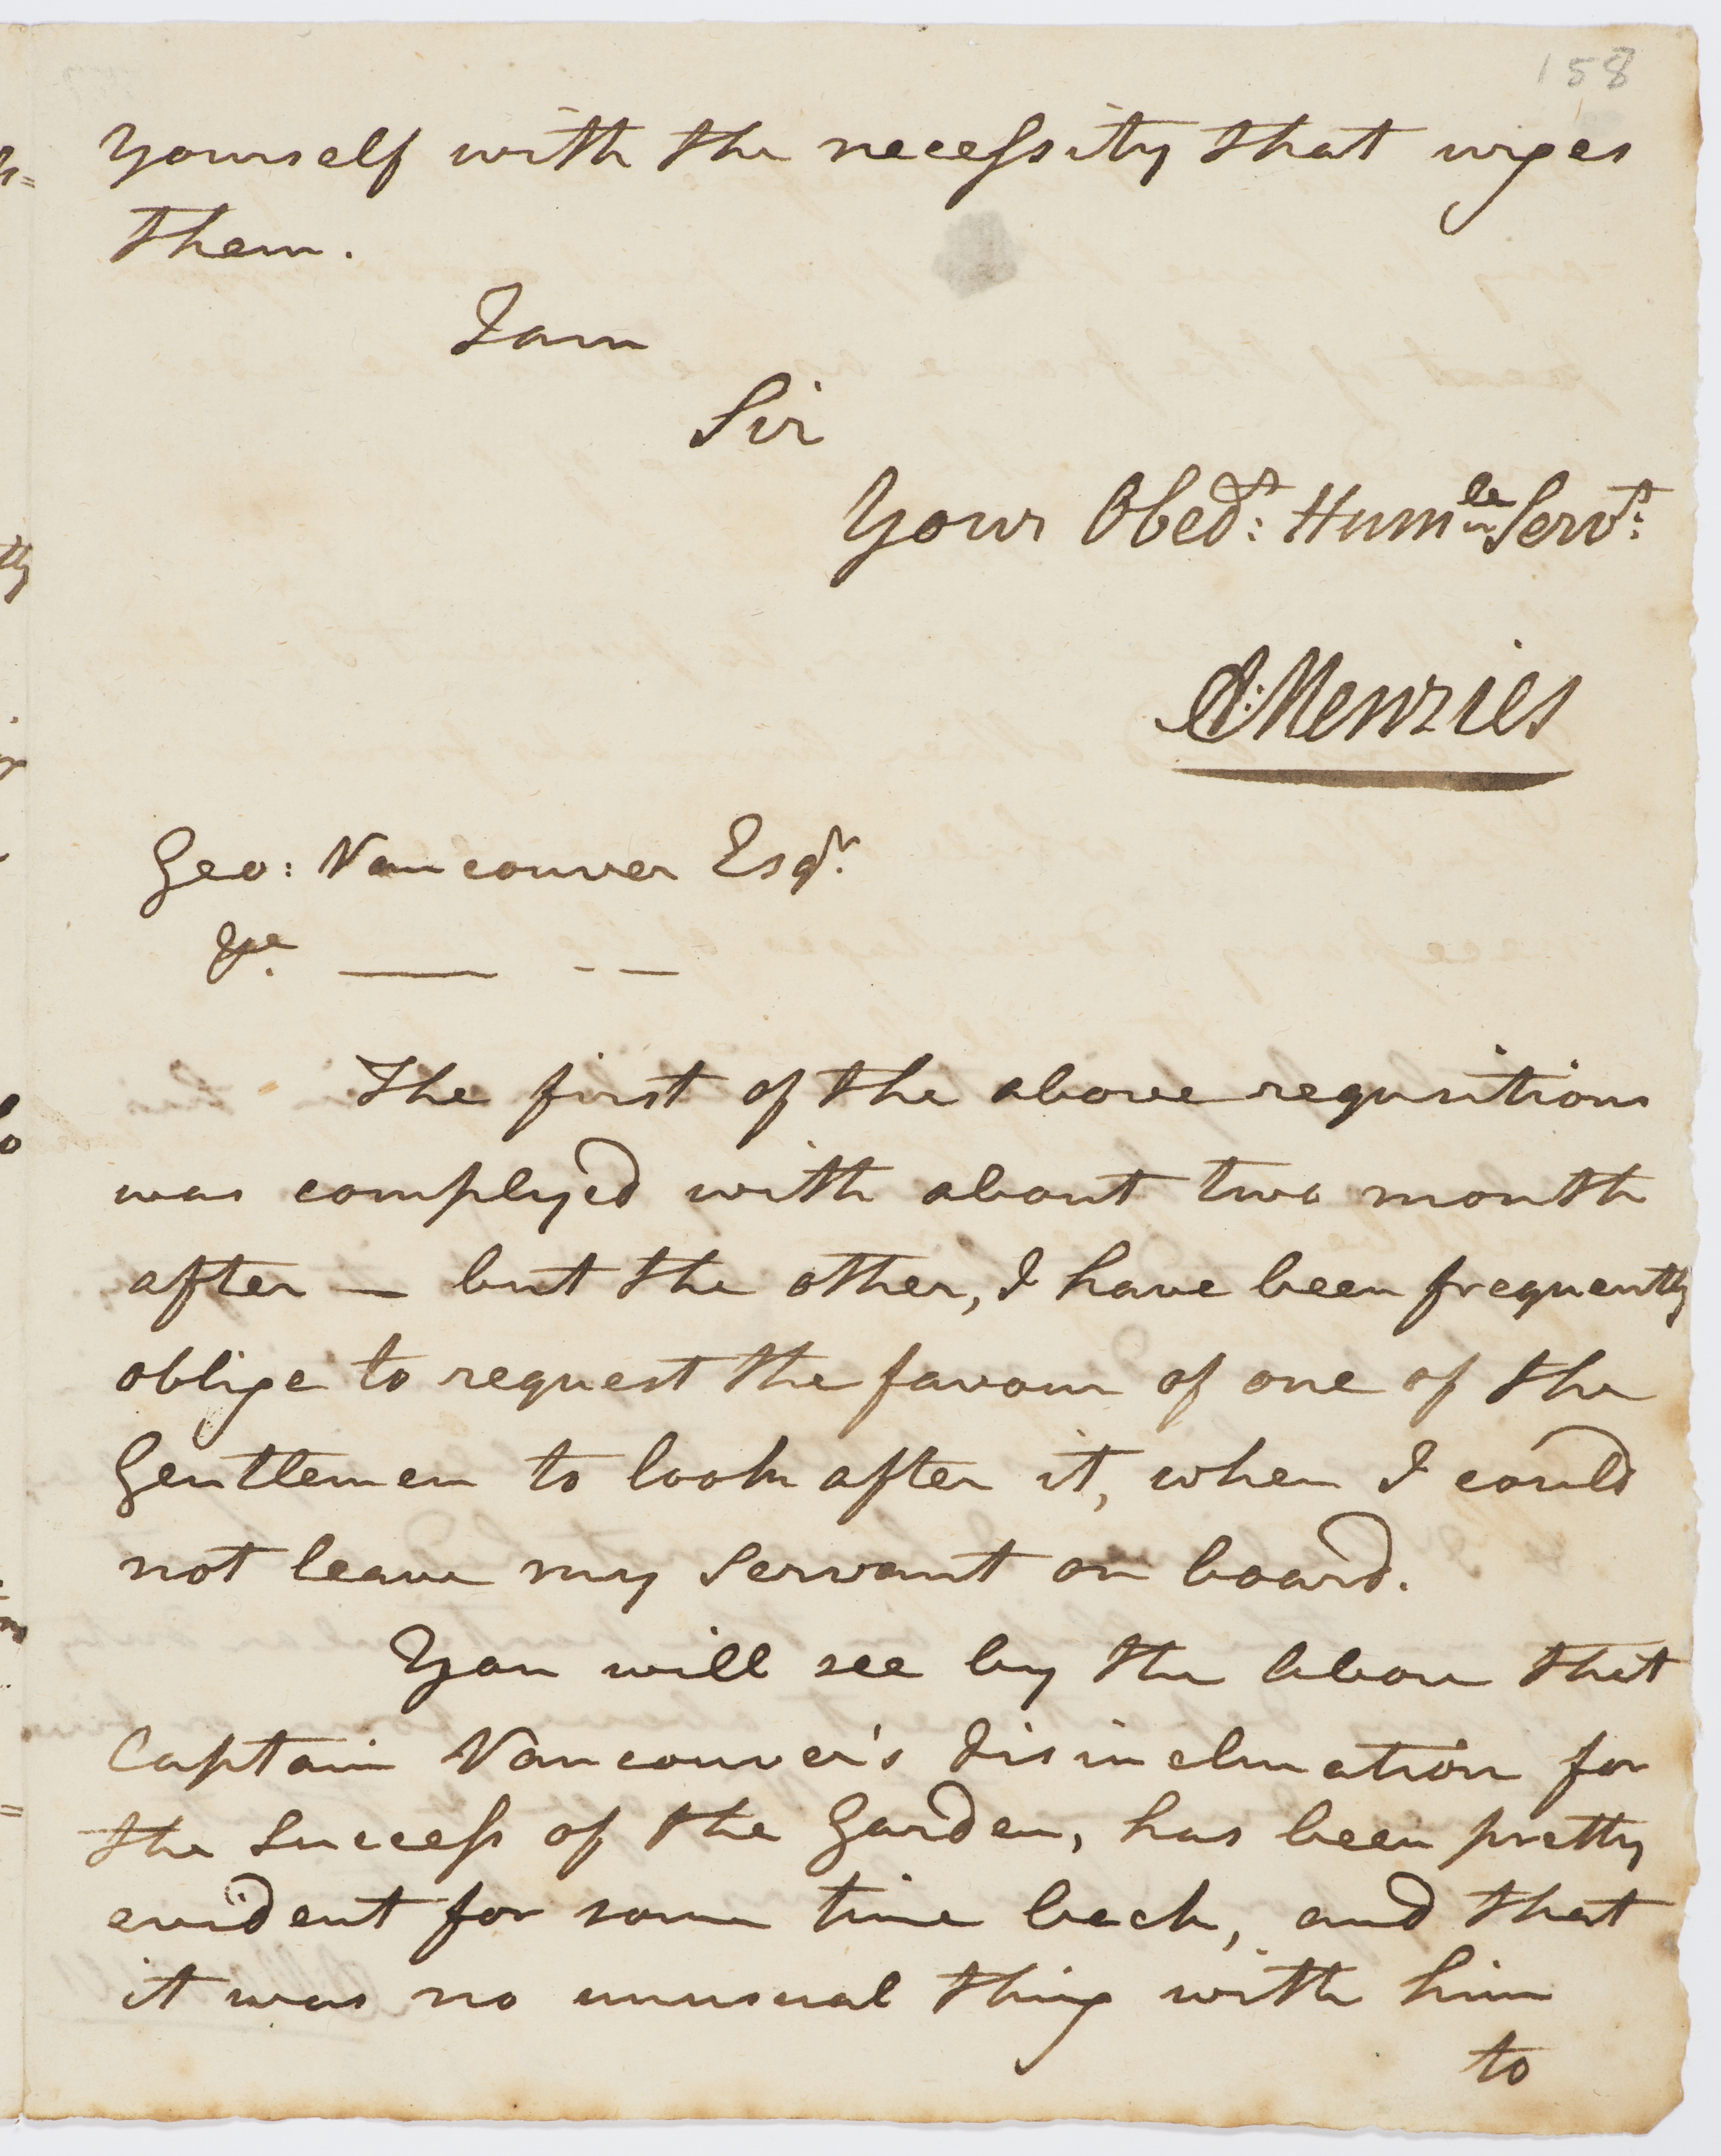 158
yourself with the necessity that urges
them.
I am
Sir
Your Obedt: Humle Servt:
A: Menzies
Geo: Vancouver Esqr.
The first of the above requisitions
was complyed with about two month
after — but the other, I have been frequently
oblige to request the favour of one of the
Gentlemen to look after it, when I could
not leave my Servant on board.
You will see by the above that
Captain Vancouver's disinclination for
the Success of the Garden, has been pretty
evident for some time back, and that
it was no unusual thing with him
to